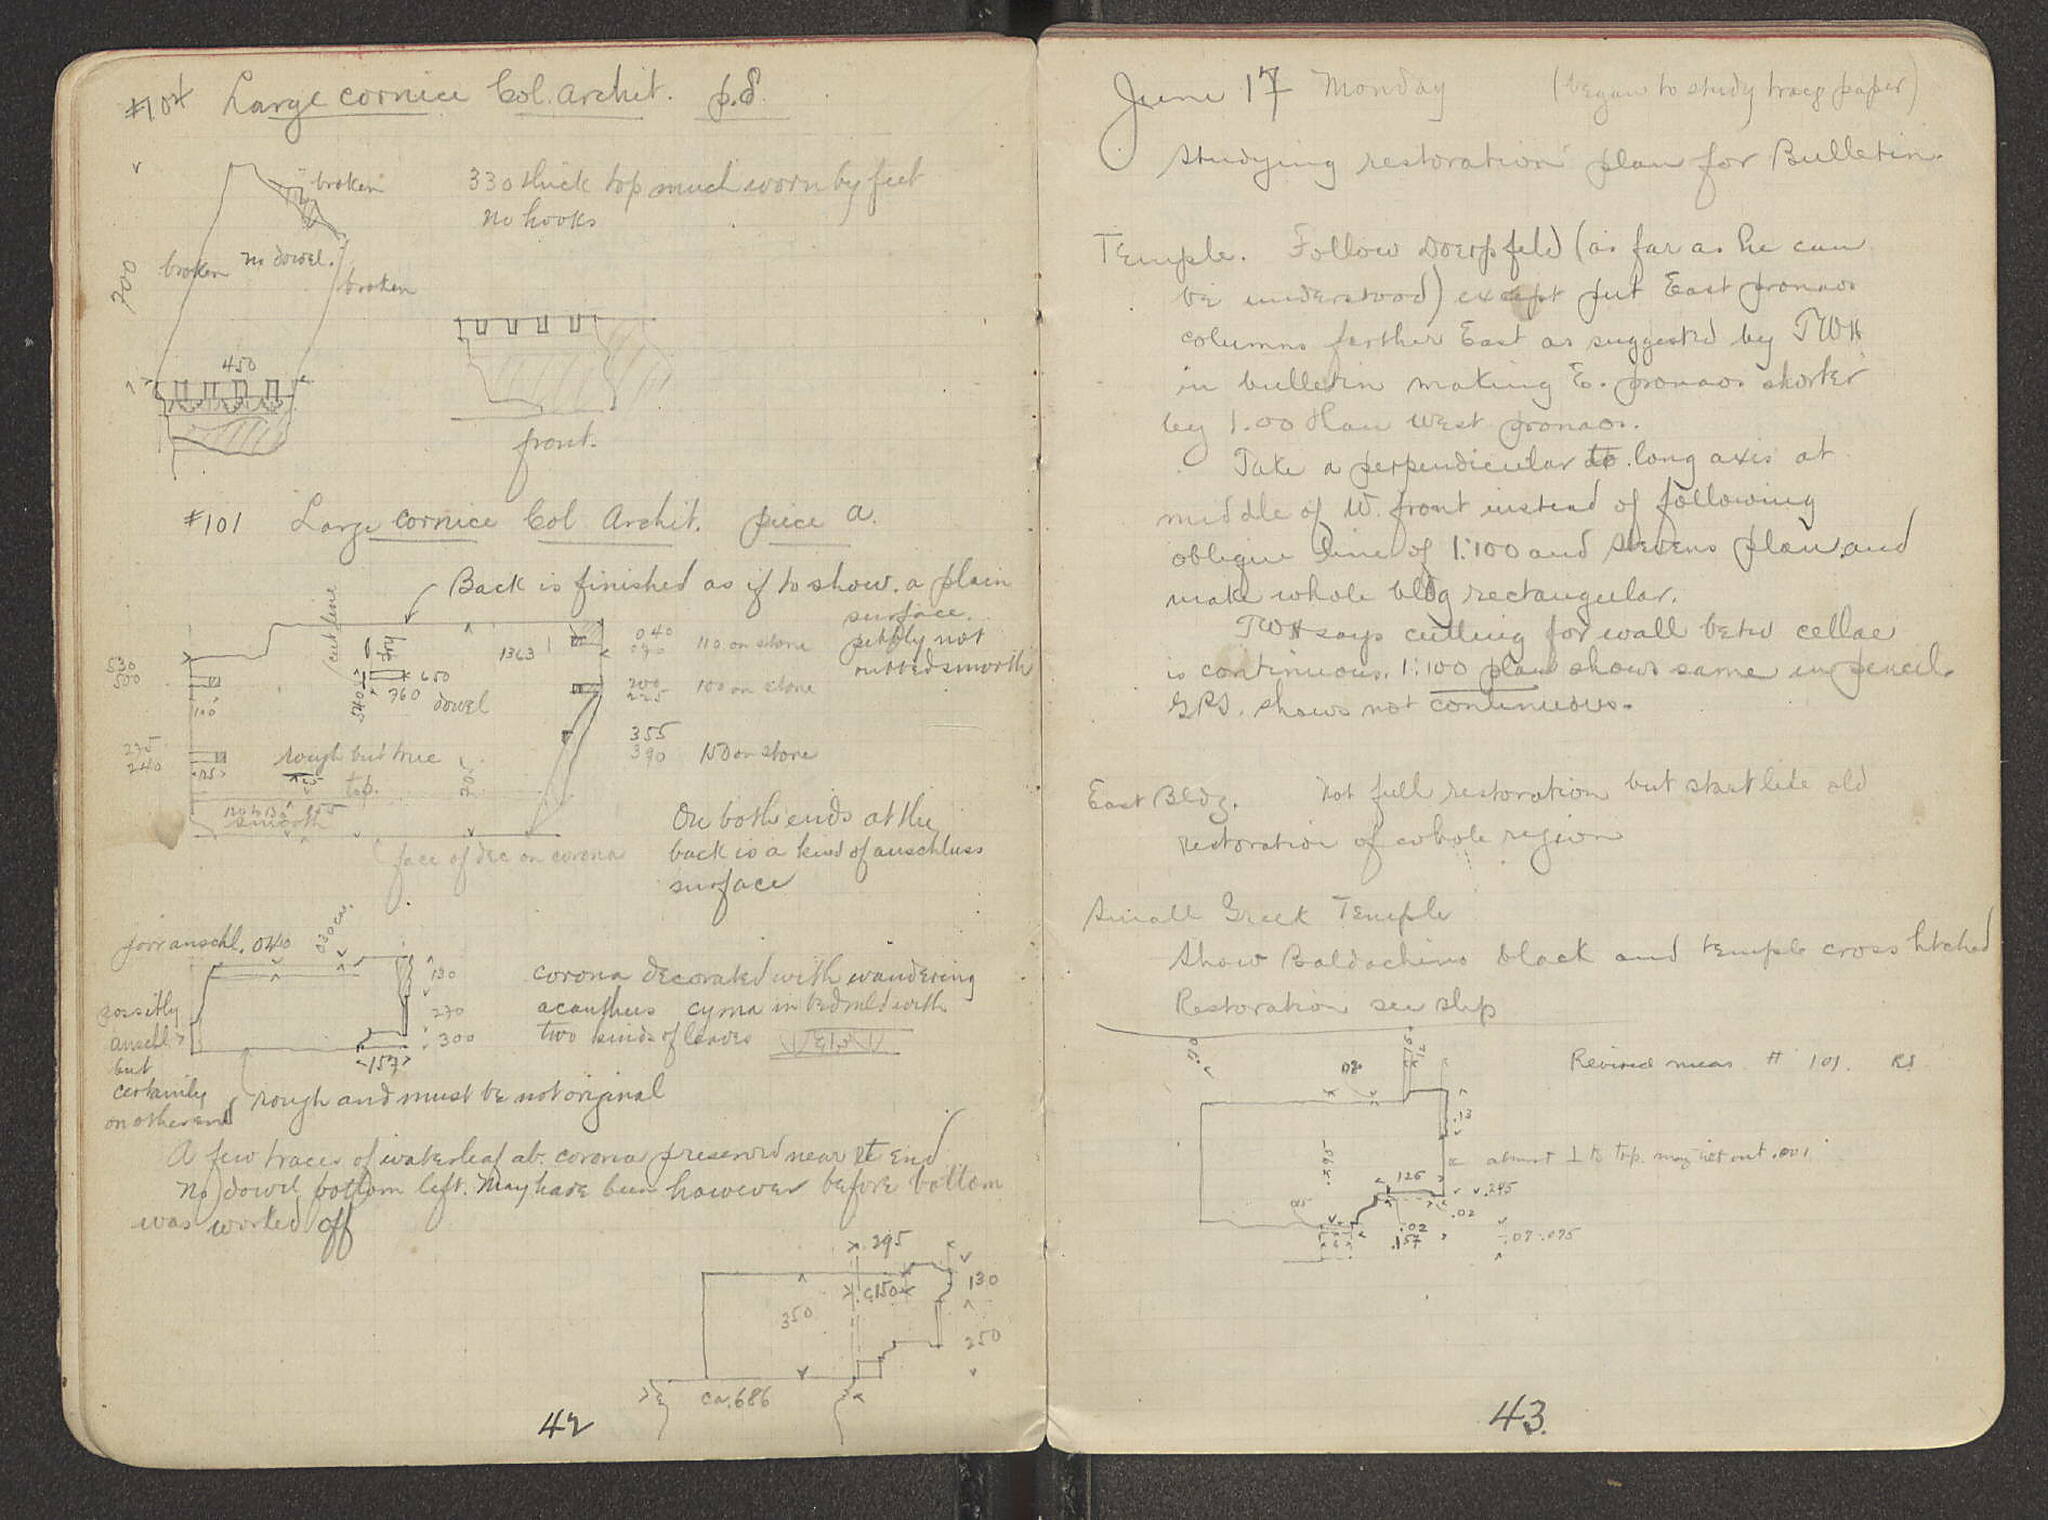 #104 Large cornice Col. Archit. p.8.
broken
330 thick top much worn by feet
no hooks
700
broken no dowel.
broken
450
front.
#101 Large cornice Col Archit. piece a.
Back is finished as if to show. a plain
surface.
cut line
1363
040
090
110 on stone
not
rubbed smooth
530
500
100
540
650
760
dowel
200
225
100 on stone
355
390
150 on stone
295
240
125
rough but true
top.
smooth
face of dec on corona
On both ends at the
back is a kind of anschluss
surface
anschl. 040
030 ca.
possibly
anschl
but
certainly
on other end
130
270
300
157
corona decorated with wandering
acanthus cyma in bedmld with
two kinds of leaves
rough and must be not original
A few traces of waterleaf ab. corona preserved near rt End
No dowel bottom left. May have been however before bottom
was worked off
295
c.150
130
350
250
ca. 686
42
June 17 Monday (began to study trac'g paper)
Studying restoration plan for Bulletin.
Temple. Follow Doerpfeld (as far as he can
be understood) except put East pronaos
columns farther East as suggested by TWH
in bulletin making E. pronaos shorter
by 1.00 than West pronaos.
Take a perpendicular to long axis at
middle of W. front instead of following
oblique line of 1:100 and Stevens plan and
make whole bldg rectangular.
TWH says cutting for wall betw cellae
is continuous. 1:100 plan shows same in pencil.
GPS. shows not continuous.
East Bldg. Not full restoration but start like old
restoration of whole region
Small Greek Temple
Show Baldachino black and temple cross htched
Restoration see slip
Revised meas # 101. RS
.13
almost ⊥ to top. may set out .001
.126
.245
.02
.02
.157
.07-.075
43.